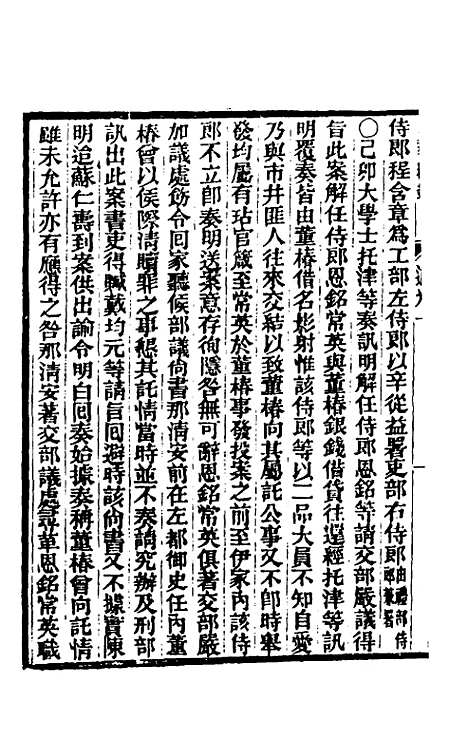 侍郎程含章為工部左侍郎以辛從益署吏部右侍郎由禮部侍郎兼署
○己卯大學士托津等奏訊明解任侍郎恩銘等請交部嚴議得
旨此案解任侍郎恩銘常英與董椿銀錢借貸往還經托津等訊
明覆奏皆由董椿借名影射惟該侍郎等以二品大員不知自愛
乃與市井匪人往來交結以致董椿向其屬託公事又不卽時舉
發均屬有玷官箴至常英於董椿事發投案之前至伊家內該侍
郎不立卽奏明送案意存徇隱咎無可辭恩銘常英俱著交部嚴
加議處飭令回家聽候部議尙書那清安前在左都御史任內董
椿曾以侯際清贖罪之事懇其託情當時並不奏請究辦及刑部
訊出此案書吏得贓戴均元等請旨回避時該尙書又不據實陳
明追蘇仁壽到案供出諭令明白回奏始據奏稱董椿曾向託情
雖未允許亦有應得之咎那清安著交部議處尋革恩銘常英職